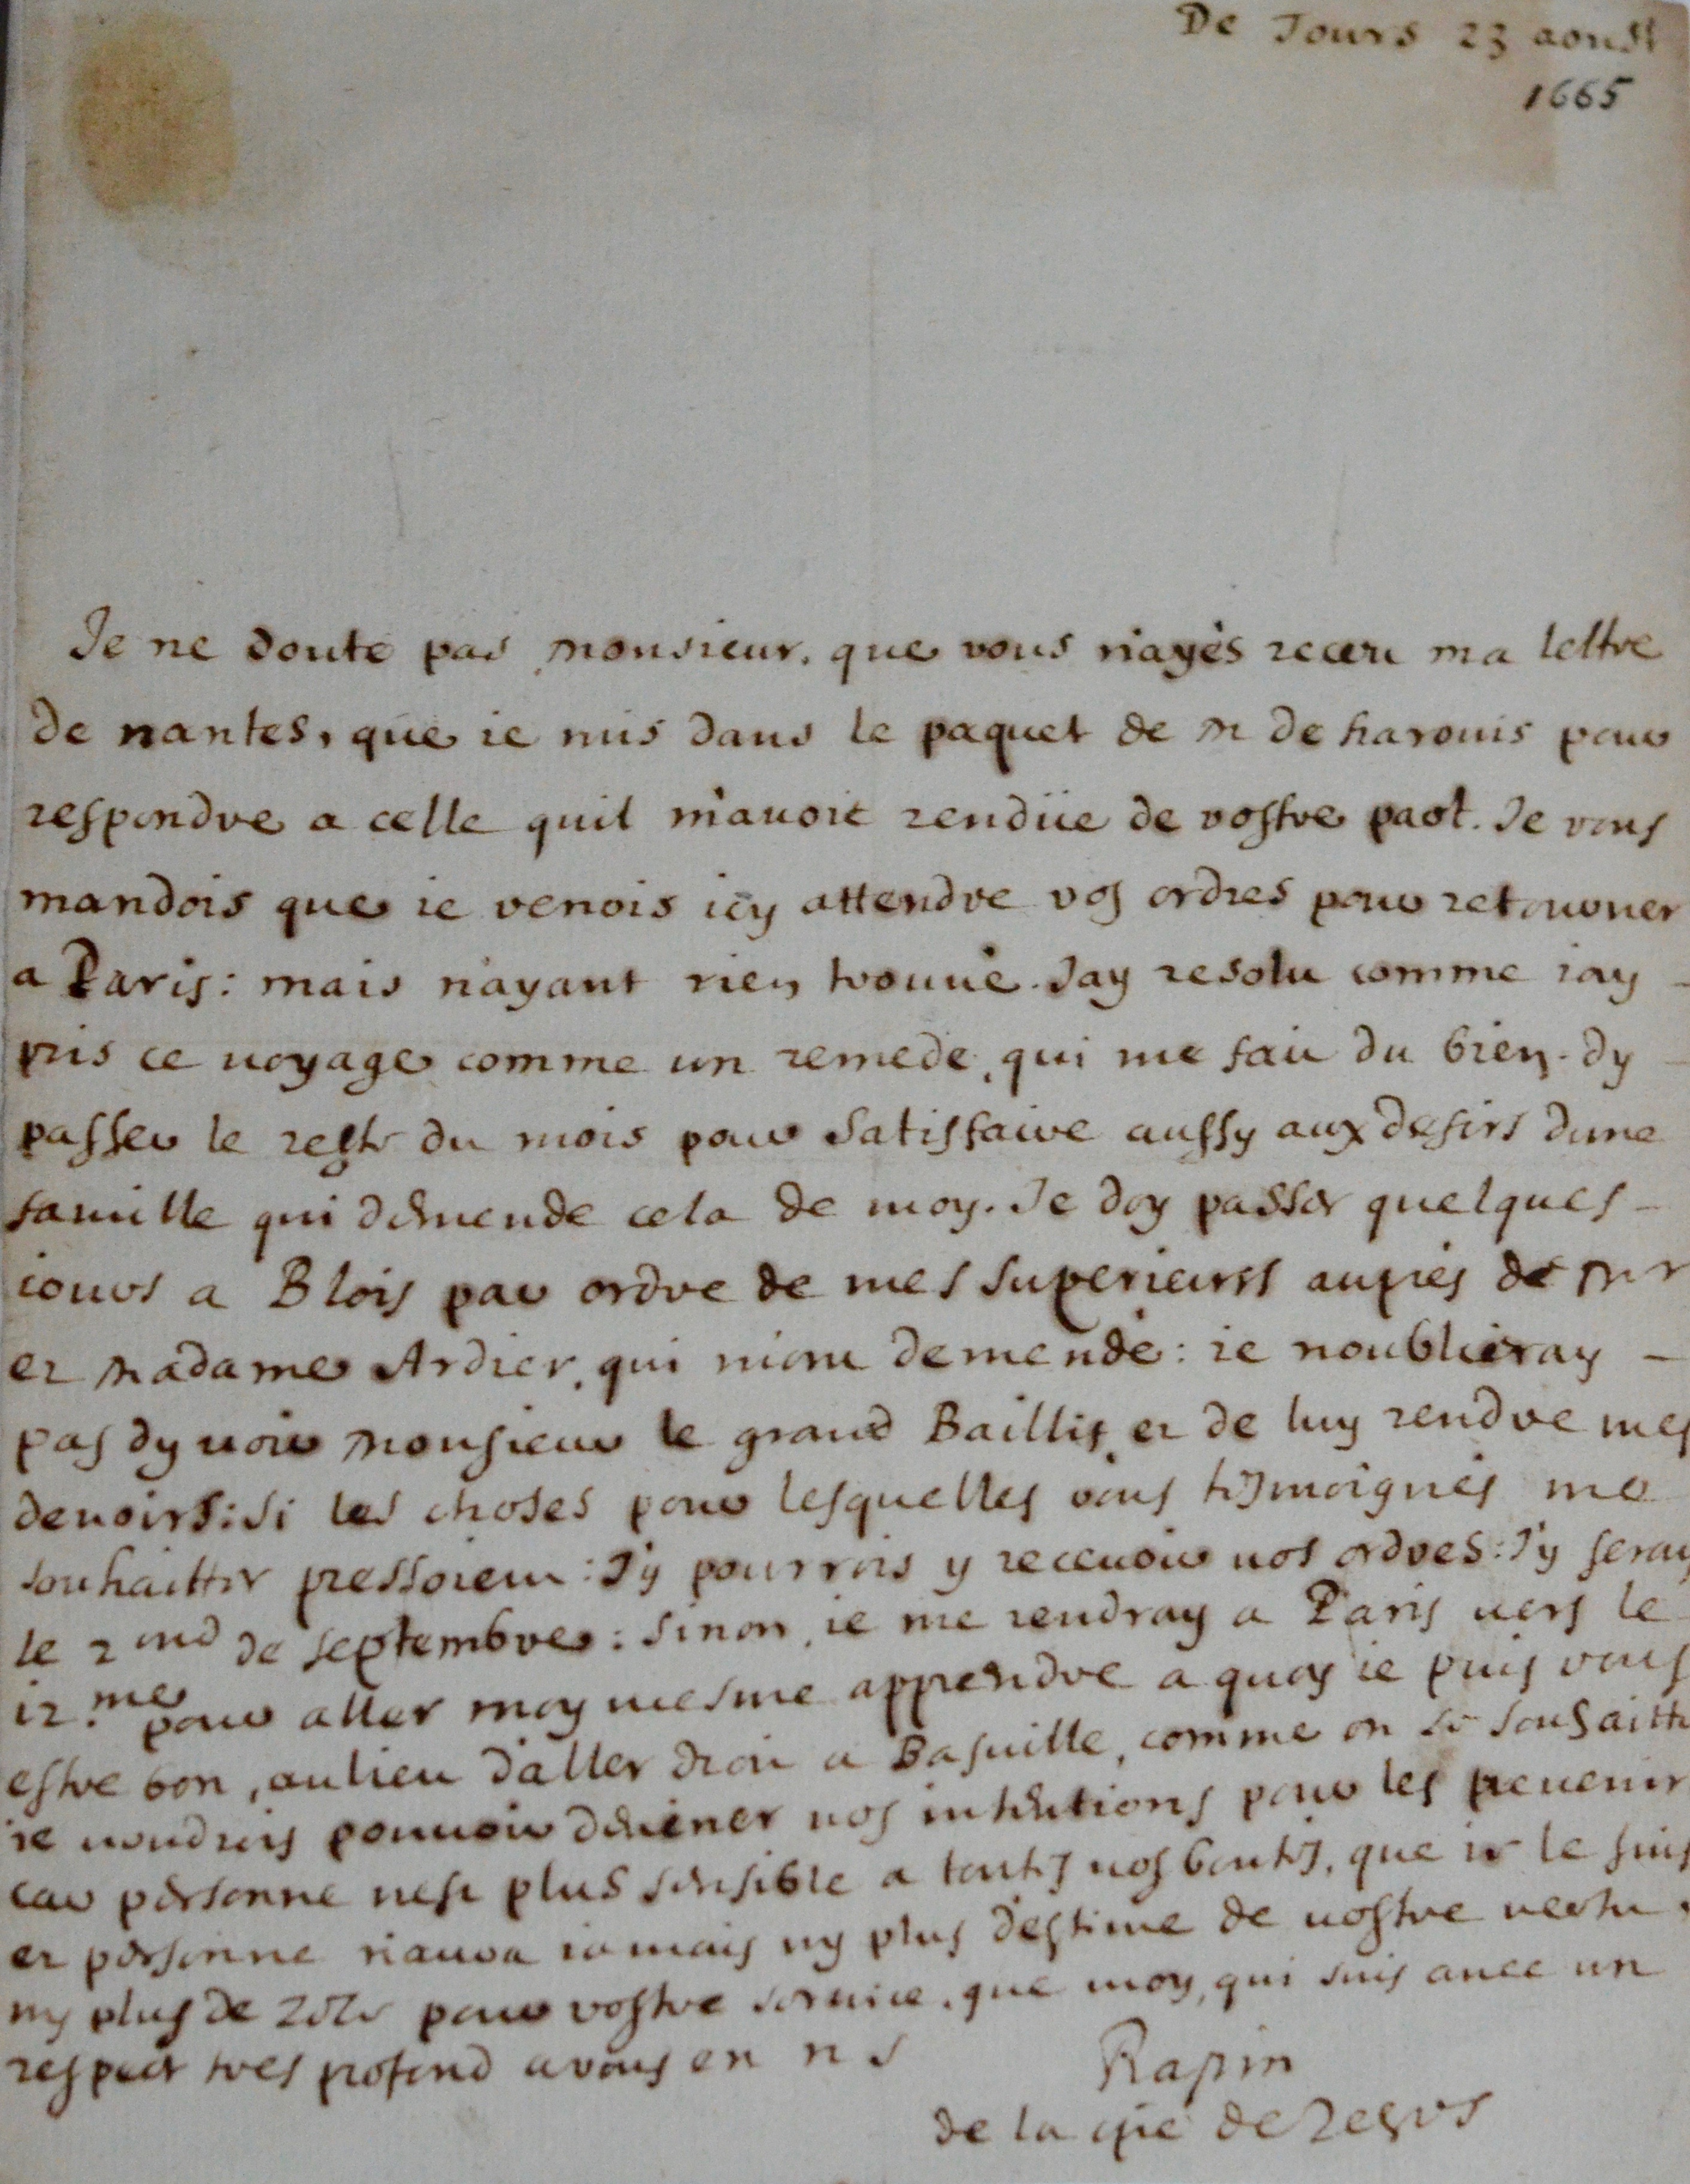 De Tours 23 aoust
1665
Je ne doute pas monsieur, que vous n'ayés receu ma lettre
de nantes, que ie mis dans le paquet de M de harouis pour
respondre a celle quil m'auoit rendüe de vostre part. Je vous
mandois que ie venois icy attendre vos ordres pour retourner
a Paris: mais n'ayant rien trouué. Jay resolu comme iay
pris ce uoyage comme un remede, qui me fait du bien. dy
passer le reste du mois pour satisfaire aussy aux desirs dune
famille qui demende cela de moy. Je doy passer quelques
iours a Blois par ordre de mes superieurs aupres de Mr
et Madame Ardier, qui m'ont demendé: ie noublieray
pas dy uoir Monsieur le grand Baillif et de luy rendre mes
deuoirs: si les choses pour lesquelles vous tesmoignés me
souhaitter pressoient: J'y pourrois y receuoir uos ordres: J'y seray
le 2ond de septembre: sinon, ie me rendray a Paris uers le
12.me pour aller moy mesme apprendre a quoy ie puis vous
estre bon, aulieu d'aller droit a Basuille, comme on le souhaitte
ie uoudrois pouuoir deuiner uos intentions pour les preuenir
car personne nest plus sensible a toutes uos bontes, que ie le suis
et personne n'aura iamais ny plus d'estime de uostre uertu,
ny plus de zele pour vostre seruice, que moy, qui suis auec un
respect tres profond a vous en n s
Rapin
de la cie de Jesus